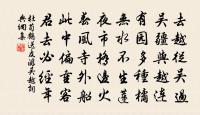 去越從吳過
吳疆與越連
有園多種橘
無水不生蓮
夜市橋邊火
春風寺外船
此中偏重客
君去必經年
杜荀鶴送友遊吳越詞
典詞集